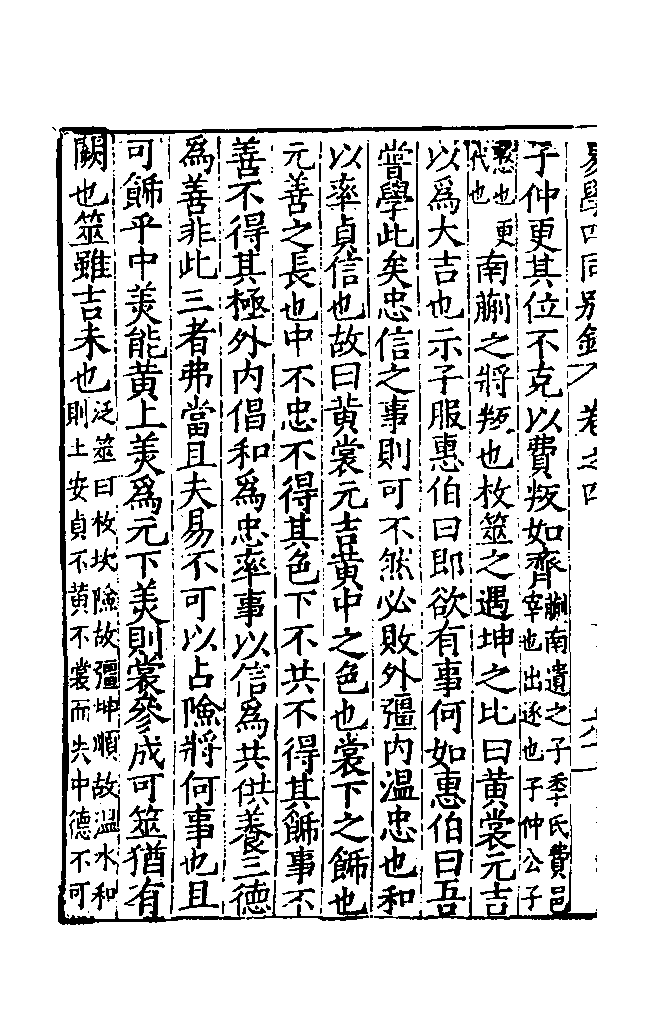 易學四同別錄　卷之四
子仲更其位不克以費叛如齊蒯南遺之子季氏費邑宰也出逐也子仲公子
憖也更代也南蒯之將叛也枚筮之遇坤之比曰黃裳元吉
以爲大吉也示子服惠伯曰即欲有事何如惠伯曰吾
嘗學此矣忠信之事則可不然必敗外彊内溫忠也和
以率貞信也故曰黃裳元吉黃中之色也裳下之飾也
元善之長也中不忠不得其色下不共不得其飾事不
善不得其極外内倡和爲忠率事以信爲共供養三德
爲善非此三者弗當且夫易不可以占險將何事也且
可飾乎中美能黃上美爲元下美則裳參成可筮猶有
闕也筮雖吉未也泛筮曰枚坎險故彊坤順故溫水和則土安貞不黃不裳而失中德不可